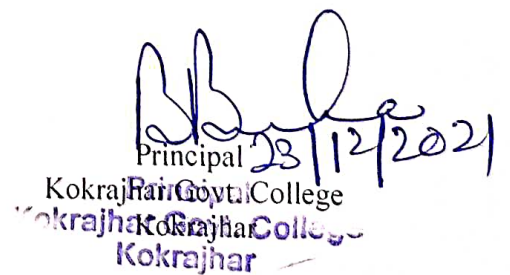 23/12/2021
Principal
Kokrajhar Govt. College
Kokrajhar
Principal
Kokrajhar Govt. College
Kokrajhar